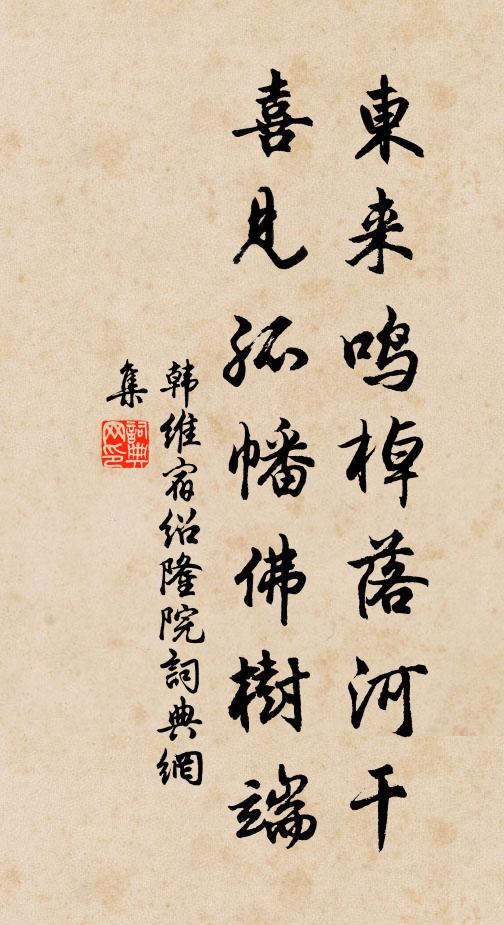 東来鳴棹落河干
喜見孤幡佛樹端
韩維宿紹隆院詞典網
集
詞典网印